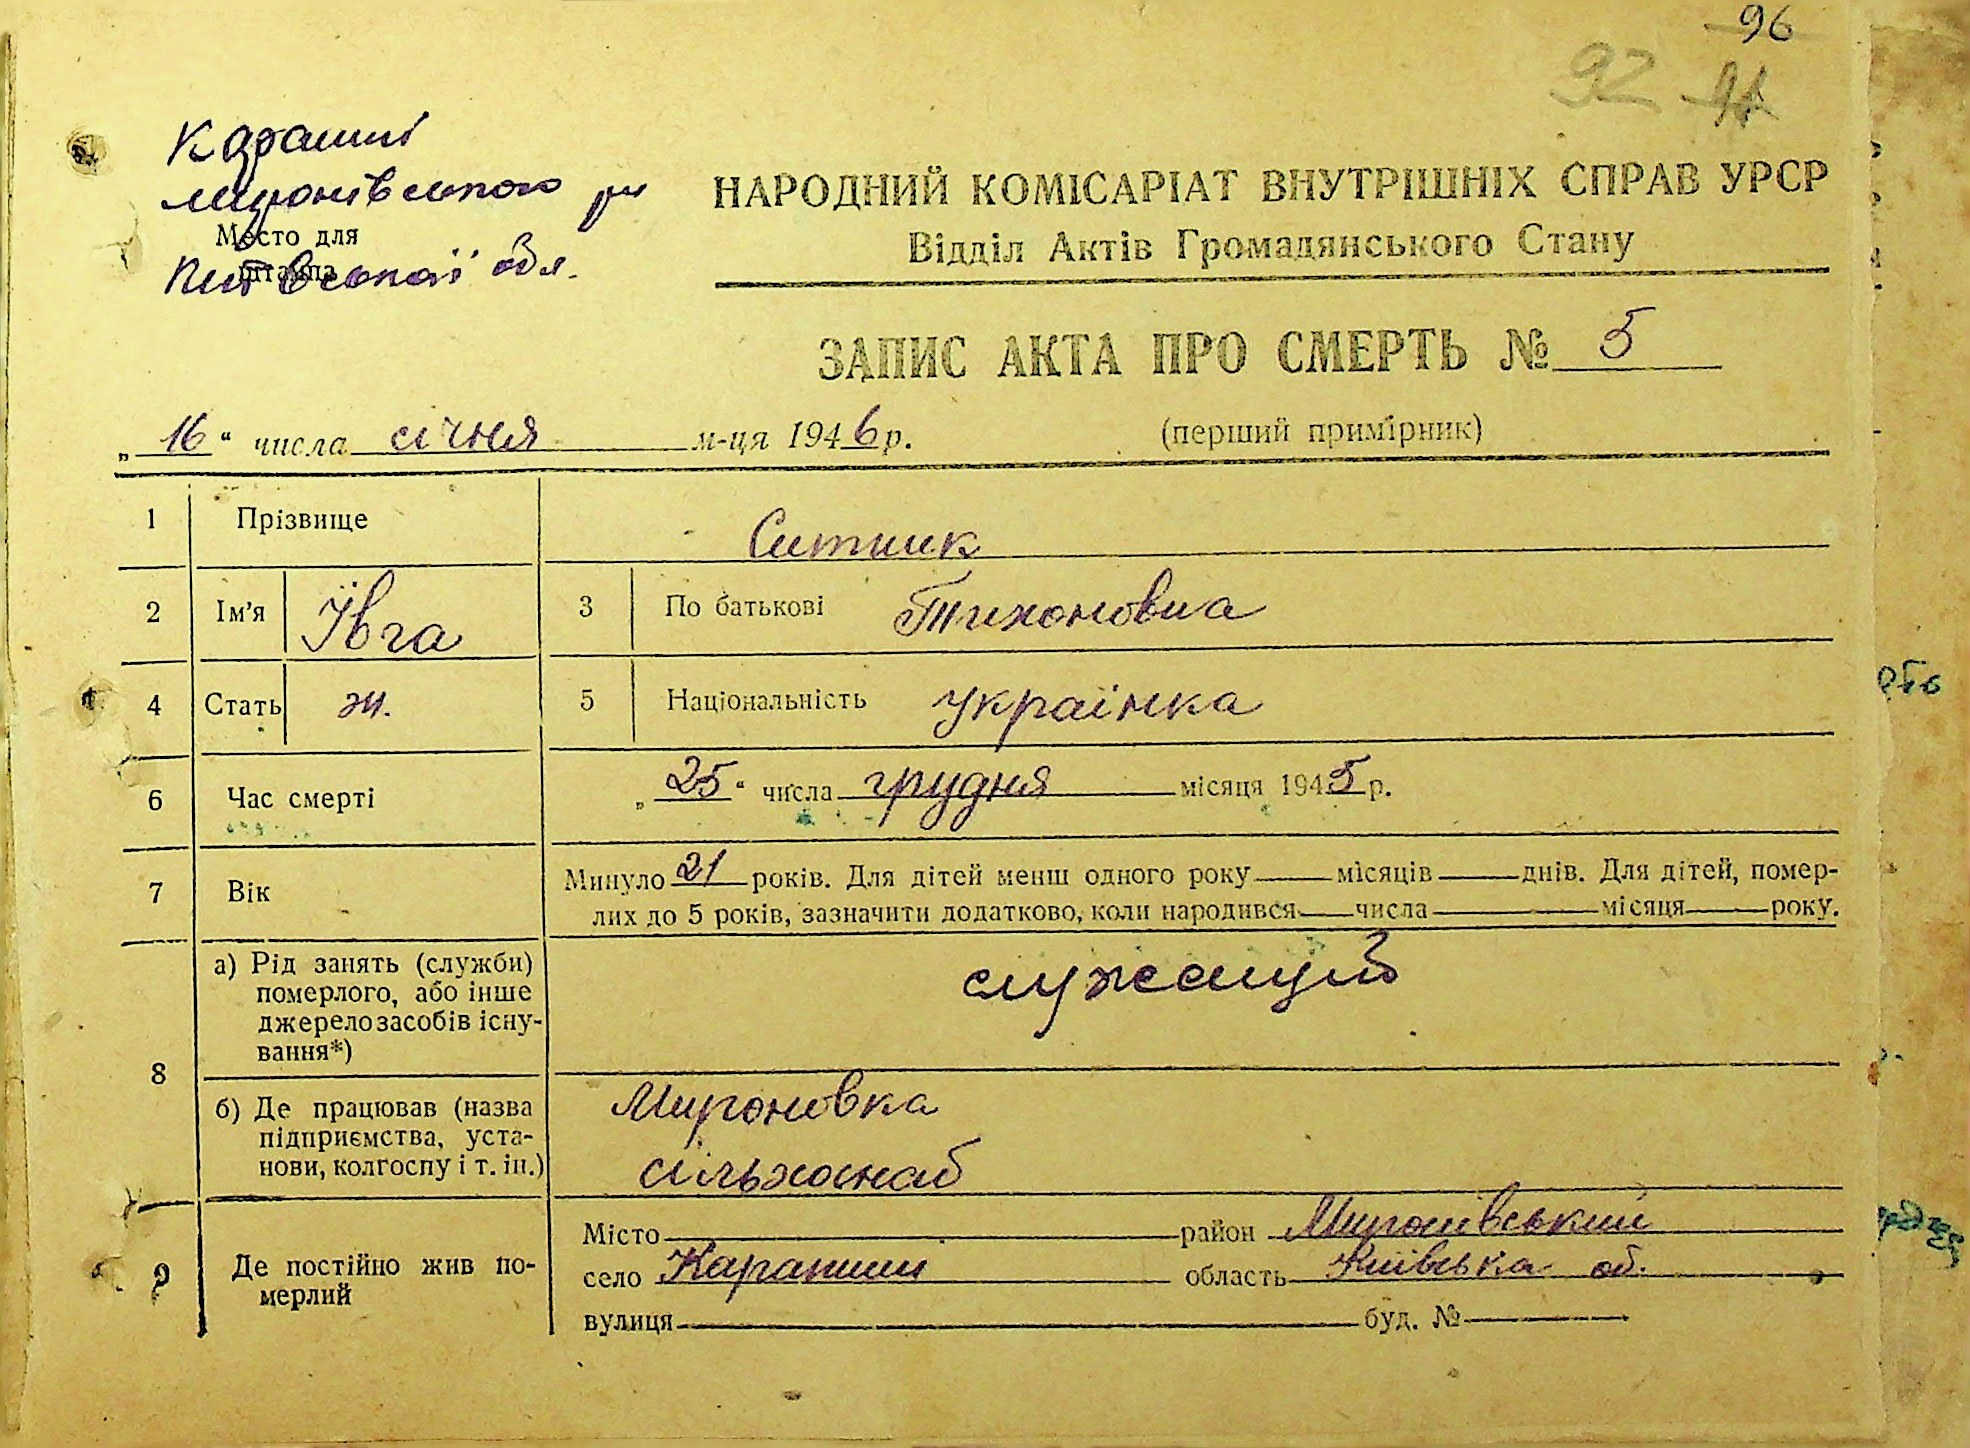 96
92 91
Карапиші
Миронівського р-н
Место для
штампа
Київської обл.
НАРОДНИЙ КОМІСАРІАТ ВНУТРІШНІХ СПРАВ УРСР
Відділ Актів Громадянського Стану
ЗАПИС АКТА ПРО СМЕРТЬ № 5
„16“ числа січня м-ця 1946 р. (перший примірник)
1 Прізвище Ситник
2 Ім'я Ївга 3 По батькові Тихоновна
4 Стать ж. 5 Національність українка
6 Час смерті „25“ числа грудня місяця 1945 р.
7 Вік Минуло 21 років. Для дітей менш одного року місяців днів. Для дітей, помер-
лих до 5 років, зазначити додатково, коли народився числа місяця року.
8 а) Рід занять (служби)
померлого, або інше
джерело засобів існу-
вання*)
служащий
б) Де працював (назва
підприємства, уста-
нови, колгоспу і т. ін.)
Мироновка
сільхоснаб
9 Де постійно жив по-
мерлий
Місто район Миронівський
село Карапиши область Київська об.
вулиця буд. №